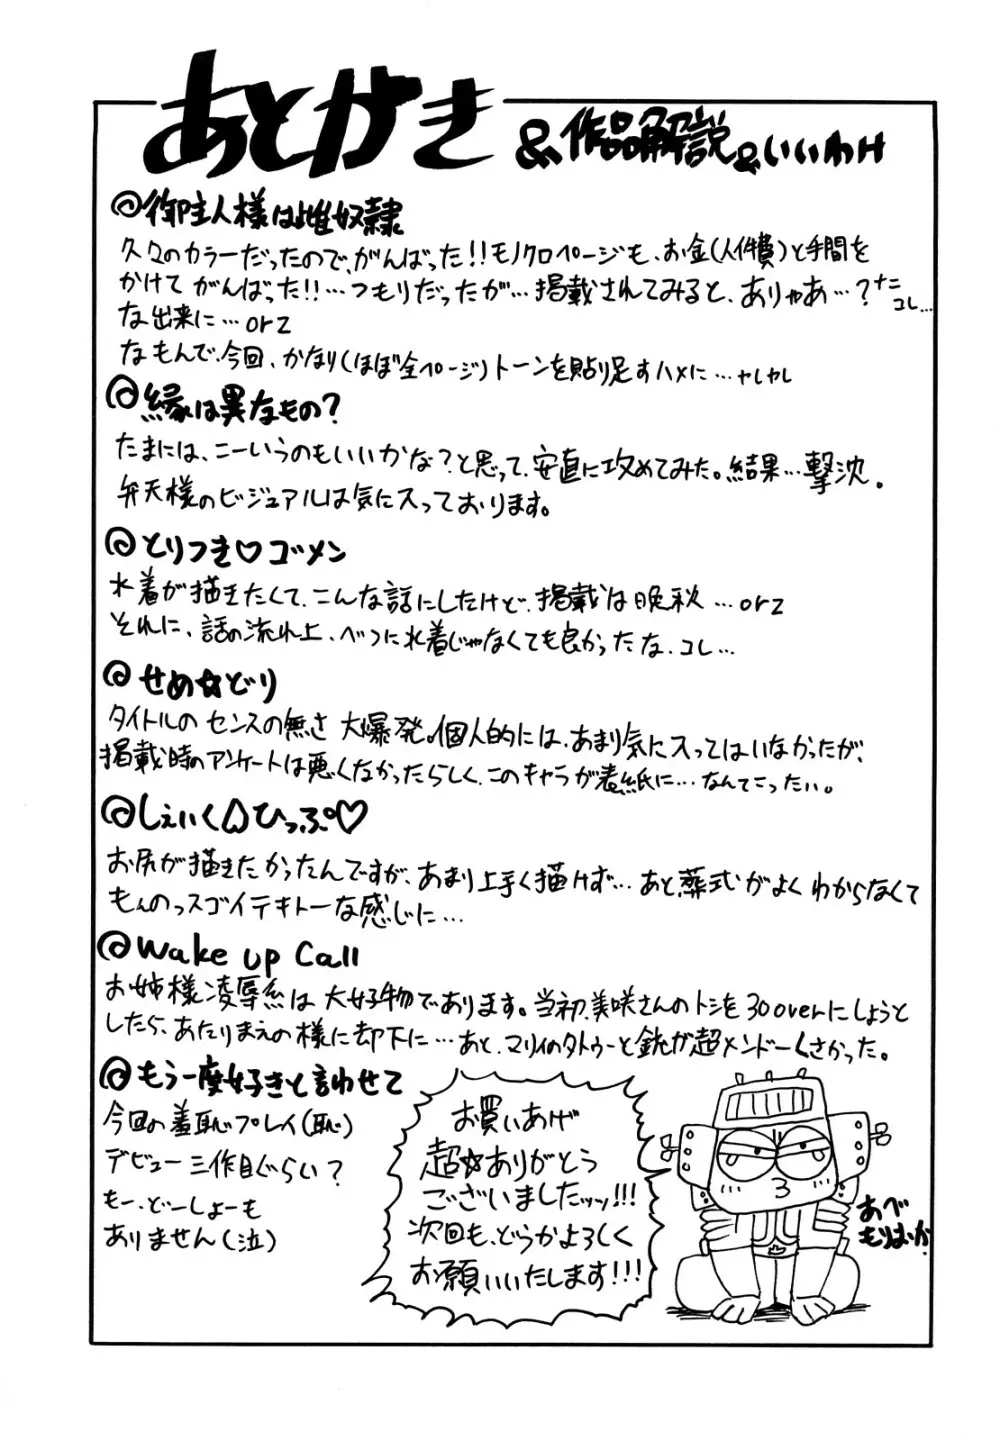 あとがき
&作品解説&いいわけ
@御主人様は雌奴隷
久々のカラーだったので、がんばった!!モノクロページも、お金(人件費)と手間を
かけてがんばった!!…つもりだったが…掲載されてみると、ありゃあ…?ナニコレ…
な出来に…orz
なもんで、今回、かなり(ほぼ全ページ)トーンを貼り足すハメに…ヤレヤレ
@縁は異なもの?
たまには、こーいうのもいいかな?と思って、安直に攻めてみた。結果…撃沈。
弁天様のビジュアルは気に入っております。
@とりつき♡ゴメン
水着が描きたくて、こんな話にしたけど、掲載は晩秋…orz
それに、話の流れ上、べつに水着じゃなくても良かったな、コレ…
@せめ☆どり
タイトルのセンスの無さ大爆発。個人的には、あまり気に入ってはいなかったが、
掲載時のアンケートは悪くなかったらしく、このキャラが表紙に…なんてこったい。
@しぇいくひっぷ♡
お尻が描きたかったんですが、あまり上手く描けず…あと、葬式がよくわからなくて
もんのっスゴイテキトーな感じに…
@Wake up Call
お姉様凌辱系は大好物であります。当初、美咲さんのトシを30overにしようと
したら、あたりまえの様に却下に…あと、マリィのタトゥーと銃が超メンドーくさかった。
@もう一度好きと言わせて
今回の羞恥プレイ(恥)
デビュー三作目ぐらい?
もー、どーしょーも
ありません(泣)
お買いあげ
超☆ありがとう
ございましたッッ!!!
次回も、どうかよろしく
お願いいたします!!!
あべ
もりおか